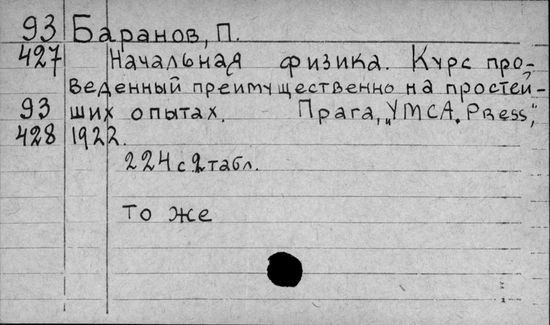 93 Баранов, П.
427 Начальная физика. Курс про-
веденный преимущественно на простей-
93 ших опытах. Прага, "YMCA Press",
428 1922.
224 с. 2 табл.
То же